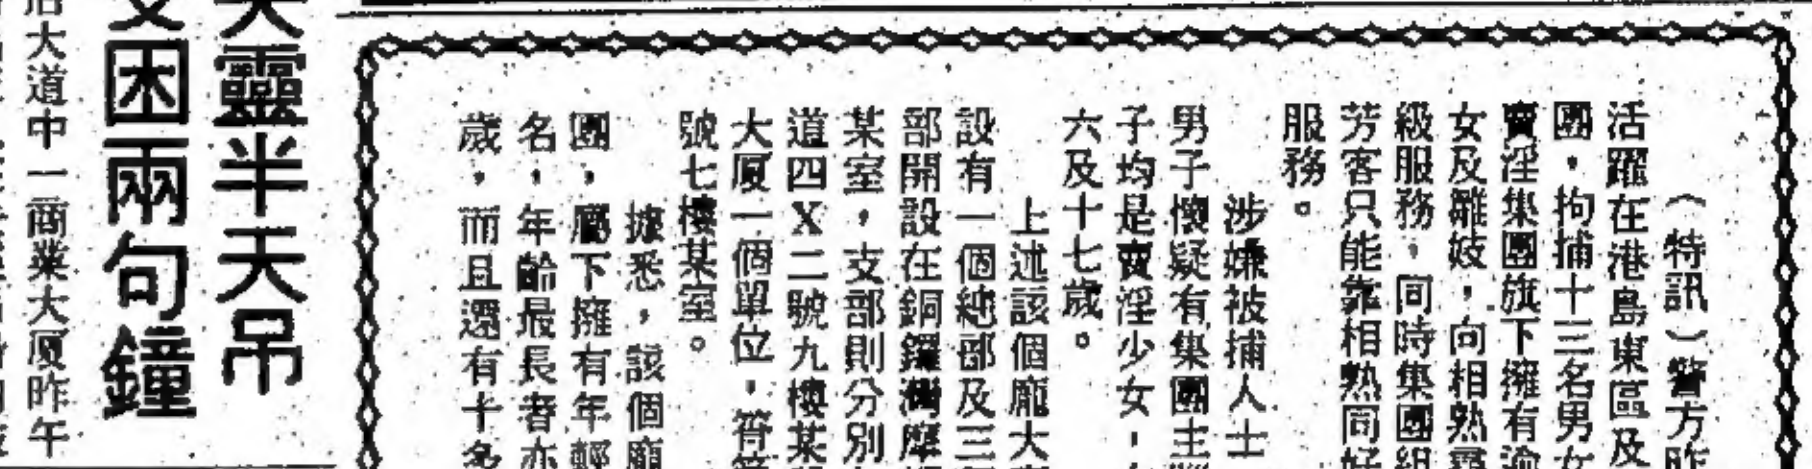 （特訊）警方昨
活躍在港島東區及
團，拘捕十三名男女
賣淫集團旗下擁有逾
女及雛妓，向相熟尋
級服務，同時集團組
芳客只能靠相熟同好
服務。
涉嫌被捕人士
男子懷疑有集團主
子均是賣淫少女，
六及十七歲。
上述該個龐大
設有一個總部及三
部開設在銅鑼灣摩
某室，支部則分別
道四X二號九樓某
大厦一個單位，
號七樓某室。
據悉，該個龐
團，屬下擁有年輕
名，年齡最長者亦
歲，而且還有十多
天靈半天吊
受困兩句鐘
大道中一商業大厦昨午